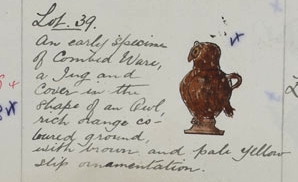 Lot. 39.
An early specimen
of Combed Ware,
a Jug and
Cover in the
shape of an Owl,
rich orange co-
loured ground,
with brown and pale yellow
slip ornamentation.